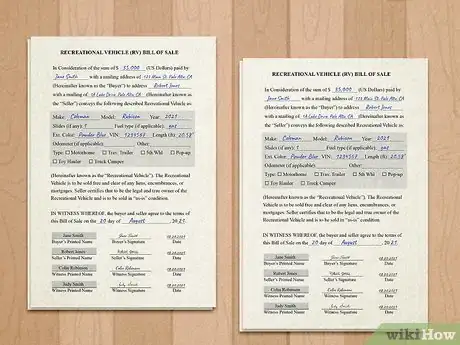 RECREATIONAL VEHICLE (RV) BILL OF SALE
In Consideration of the sum of $ 35,000 (US Dollars) paid by
Jane Smith with a mailing address of 123 Main St. Palo Alto, CA
(Hereinafter known as the "Buyer") to address Robert Jones
with a mailing of 1A Lake Drive, Palo Alto, CA (Hereinafter known as
the "Seller") conveys the following described Recreational Vehicle as:
Make: Coleman Model: Rubicon Year: 2021
Slides (if any): 1 Fuel type (if applicable): gas
Ext. Color: Powder Blue VIN: 1234567 Length (ft): 20.58'
Odometer (if applicable): Other:
Type: ☐ Motorhome ☐ Trav. Trailer ☐ 5th Whl ☐ Pop-up
☐ Toy Hauler ☐ Truck Camper
(Hereinafter known as the "Recreational Vehicle"). The Recreational
Vehicle is to be sold free and clear of any liens, encumbrances, or
mortgages. Seller certifies that he/she is the legal and true owner of the
Recreational Vehicle and is to be sold in "as-is" condition.
IN WITNESS WHEREOF, the buyer and seller agree to the terms of
this Bill of Sale on the 20 day of August , 2021.
Jane Smith Jane Smith 08.20.2021
Buyer's Printed Name Buyer's Signature Date
Robert Jones Robert Jones 08.20.2021
Seller's Printed Name Seller's Signature Date
Colin Robinson Colin Robinson 08.20.2021
Witness Printed Name Witness Signature Date
Judy Smith Judy Smith 08.20.2021
Witness Printed Name Witness Signature Date
RECREATIONAL VEHICLE (RV) BILL OF SALE
In Consideration of the sum of $ 35,000 (US Dollars) paid by
Jane Smith with a mailing address of 123 Main St. Palo Alto, CA
(Hereinafter known as the "Buyer") to address Robert Jones
with a mailing of 1A Lake Drive, Palo Alto, CA (Hereinafter known as
the "Seller") conveys the following described Recreational Vehicle as:
Make: Coleman Model: Rubicon Year: 2021
Slides (if any): 1 Fuel type (if applicable): gas
Ext. Color: Powder Blue VIN: 1234567 Length (ft): 20.58'
Odometer (if applicable): Other:
Type: ☐ Motorhome ☐ Trav. Trailer ☐ 5th Whl ☐ Pop-up
☐ Toy Hauler ☐ Truck Camper
(Hereinafter known as the "Recreational Vehicle"). The Recreational
Vehicle is to be sold free and clear of any liens, encumbrances, or
mortgages. Seller certifies that he/she is the legal and true owner of the
Recreational Vehicle and is to be sold in "as-is" condition.
IN WITNESS WHEREOF, the buyer and seller agree to the terms of
this Bill of Sale on the 20 day of August , 2021.
Jane Smith Jane Smith 08.20.2021
Buyer's Printed Name Buyer's Signature Date
Robert Jones Robert Jones 08.20.2021
Seller's Printed Name Seller's Signature Date
Colin Robinson Colin Robinson 08.20.2021
Witness Printed Name Witness Signature Date
Judy Smith Judy Smith
Witness Printed Name Witness Signature
wikiHow